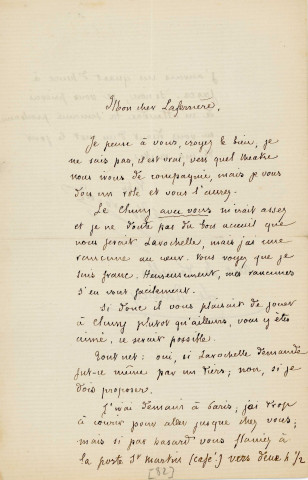 Mon cher Laferrière,
Je pense à vous, croyez le bien, je
ne sais pas, il est vrai, vers quel théâtre
nous irons de compagnie, mais je vous
dois un rôle et vous l'aurez.
Le Cluny avec vous m'irait assez
et je ne doute pas du bon accueil que
nous ferait Larochelle, mais j'ai une
rancune au cœur. Vous voyez que je
suis franc. Heureusement, mes rancunes
s'en vont facilement.
Si donc il vous plaisait de jouer
à Cluny plutôt qu'ailleurs, vous y êtes
aimé, ce serait possible.
Tout net : oui, si Larochelle demande
fut-ce même par un tiers ; non, si je
dois proposer.
J'irai demain à Paris, j'ai trop
à courir pour aller jusque chez vous ;
mais si par hasard vous flaniez à
la porte St Martin (café) vers deux h 1/2
[82]